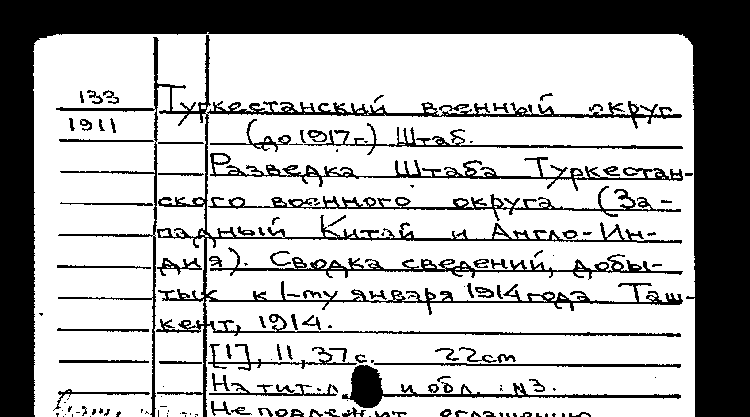 133
Туркестанский военный округ
1911
(до 1917г.) Штаб.
Разведка Штаба Туркестан-
ского военного округа (За-
падный Китай и Англо-Ин-
дия). Сводка сведений, добы-
тых к 1-му января 1914 года Таш-
кент, 1914.
[1], II, 37 с. 22cm
На тит. л. и обл. : №3.
Не подлежит оглашению